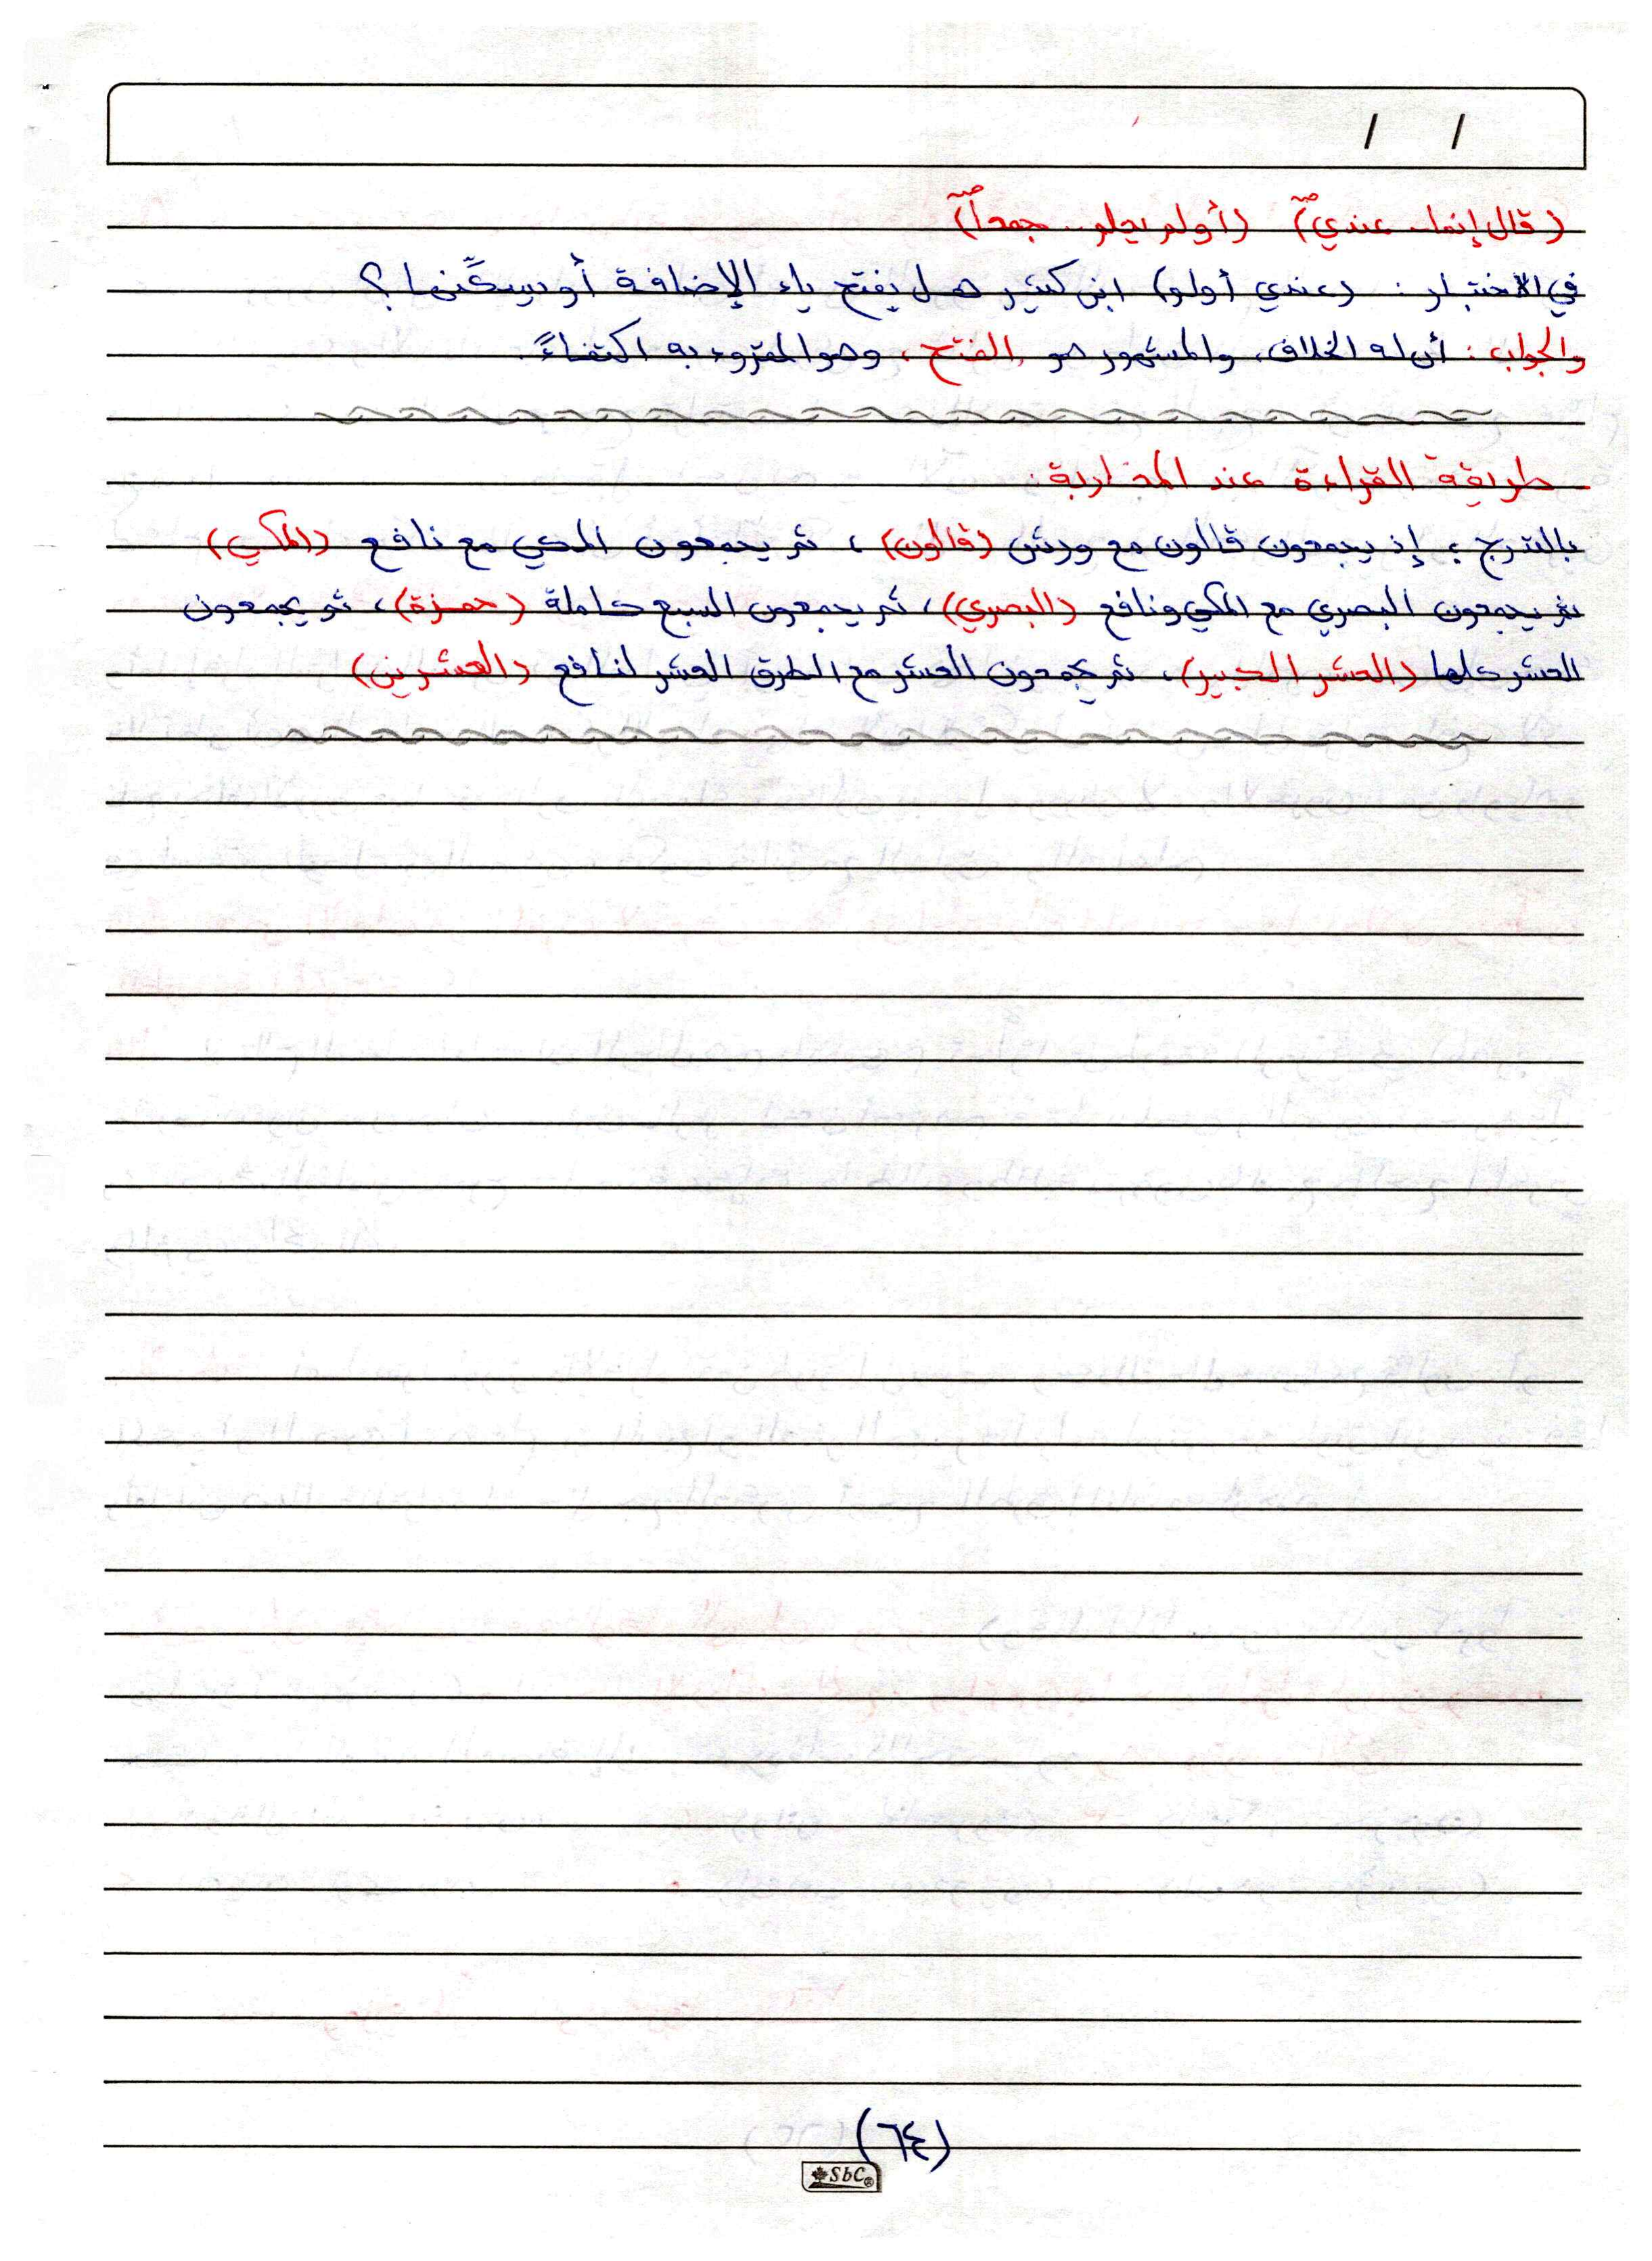 / /
(قال إنما.. عندي) صـ (أولم يعلم.. جمعاً) صـ
في الاختبار: (عندي أولم) ابن كثير هل يفتح ياء الإضافة أو يسكّنها؟
والجواب: أن له الخلاف، والمشهور هو الفتح، وهو المقروء به اكتفاءً.
طريقة القراءة عند المغاربة:
بالتدرج؛ إذ يجمعون قالون مع ورش (قالون)، ثم يجمعون المكي مع نافع (المكي)
ثم يجمعون البصري مع المكي ونافع (البصري)، ثم يجمعون السبع كاملة (حمزة)، ثم يجمعون
العشر كلها (العشر الكبير)، ثم يجمعون العشر مع الطرق العشر لنافع (العشرين)
(٦٤)
SbC